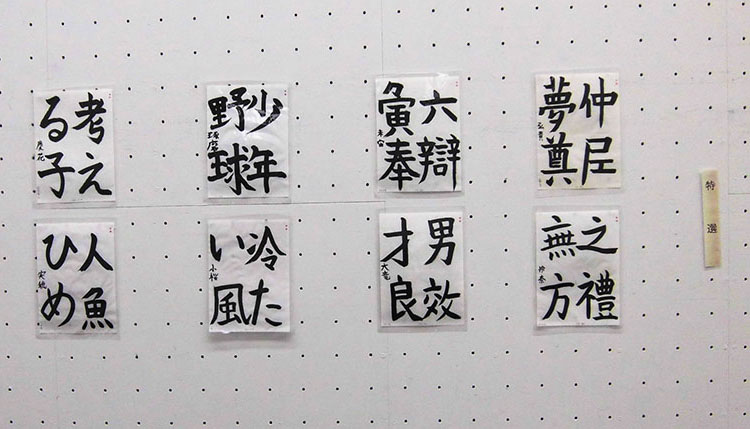 特選
仲尼
夢奠
六辯
夤奉
少年
野球
琢磨
考え
る子
之禮
無方
男效
才良
大竜
冷た
い風
小桜
人魚
ひめ